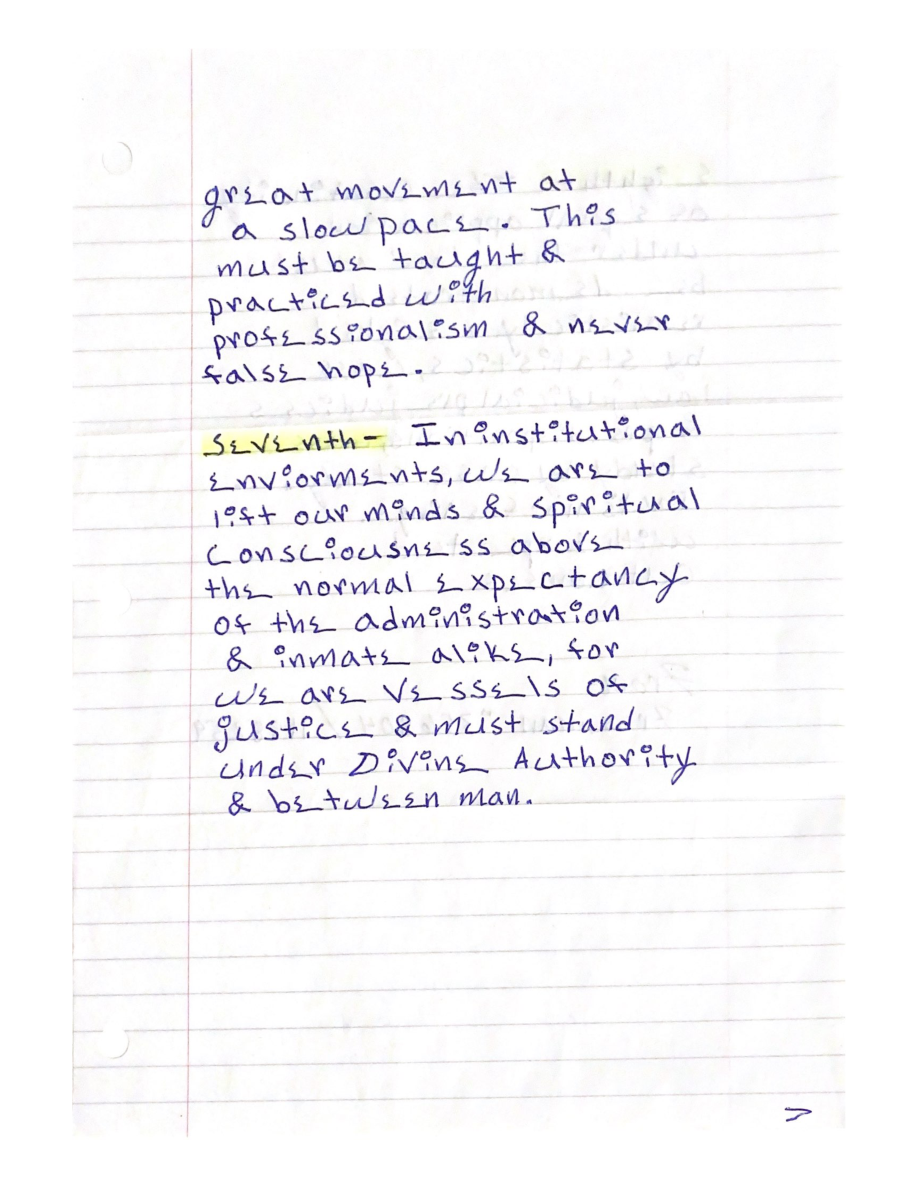 great movement at
a slow pace. This
must be taught &
practiced with
professionalism & never
false hope.
Seventh- In institutional
enviorments, we are to
lift our minds & spiritual
consciousness above
the normal expectancy
of the administration
& inmate alike, for
we are vessels of
justice & must stand
under Divine Authority
& between man.
>